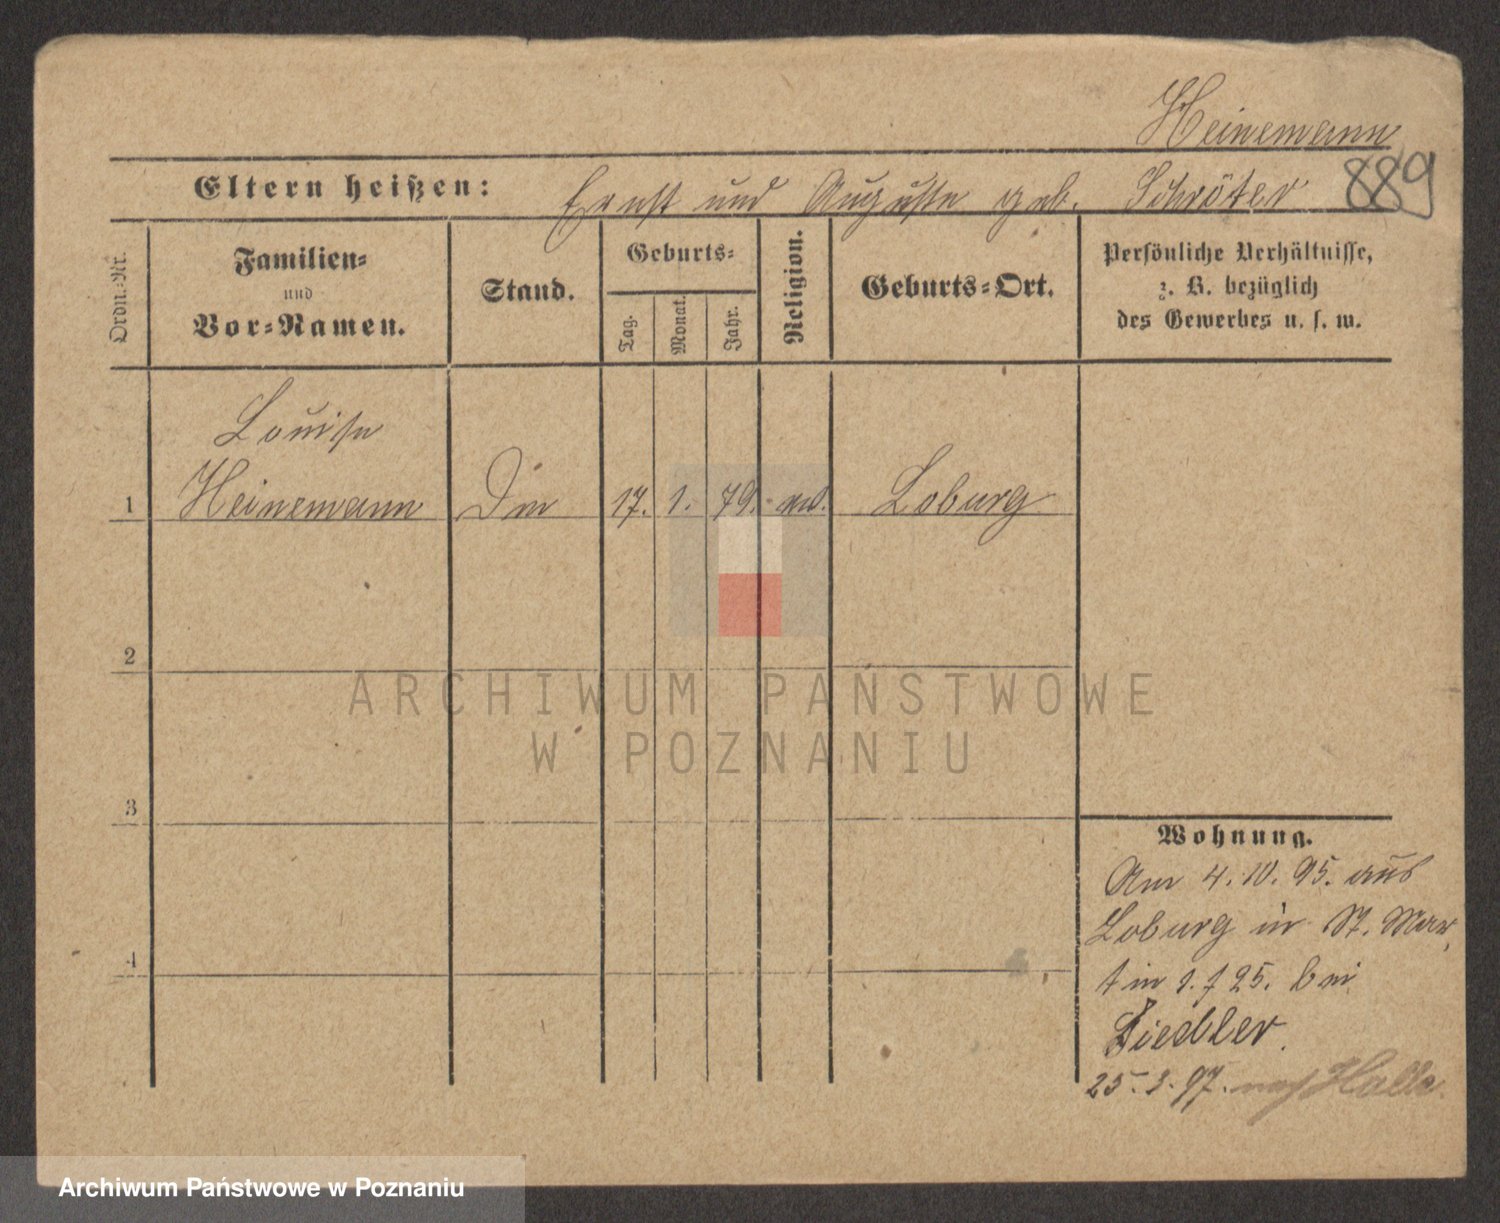 Heinemann
889
Eltern heißen: Ernst und Auguste geb. Schröter
Ordn.-Nr.
Familien-
und
Vor-Namen.
Stand.
Geburts-
Tag.
Monat.
Jahr.
Religion.
Geburts-Ort.
Persönliche Verhältnisse,
z. B. bezüglich
des Gewerbes u. s. w.
Louise
1 Heinemann 17. 1. 79. Loburg
2
ARCHIWUM PAŃSTWOWE
W POZNANIU
3
4
Wohnung.
Am 4.10.95. aus
Loburg in St. Mar
tin 25. bei
Siedler.
25.3.97. nach Halle.
Archiwum Państwowe w Poznaniu